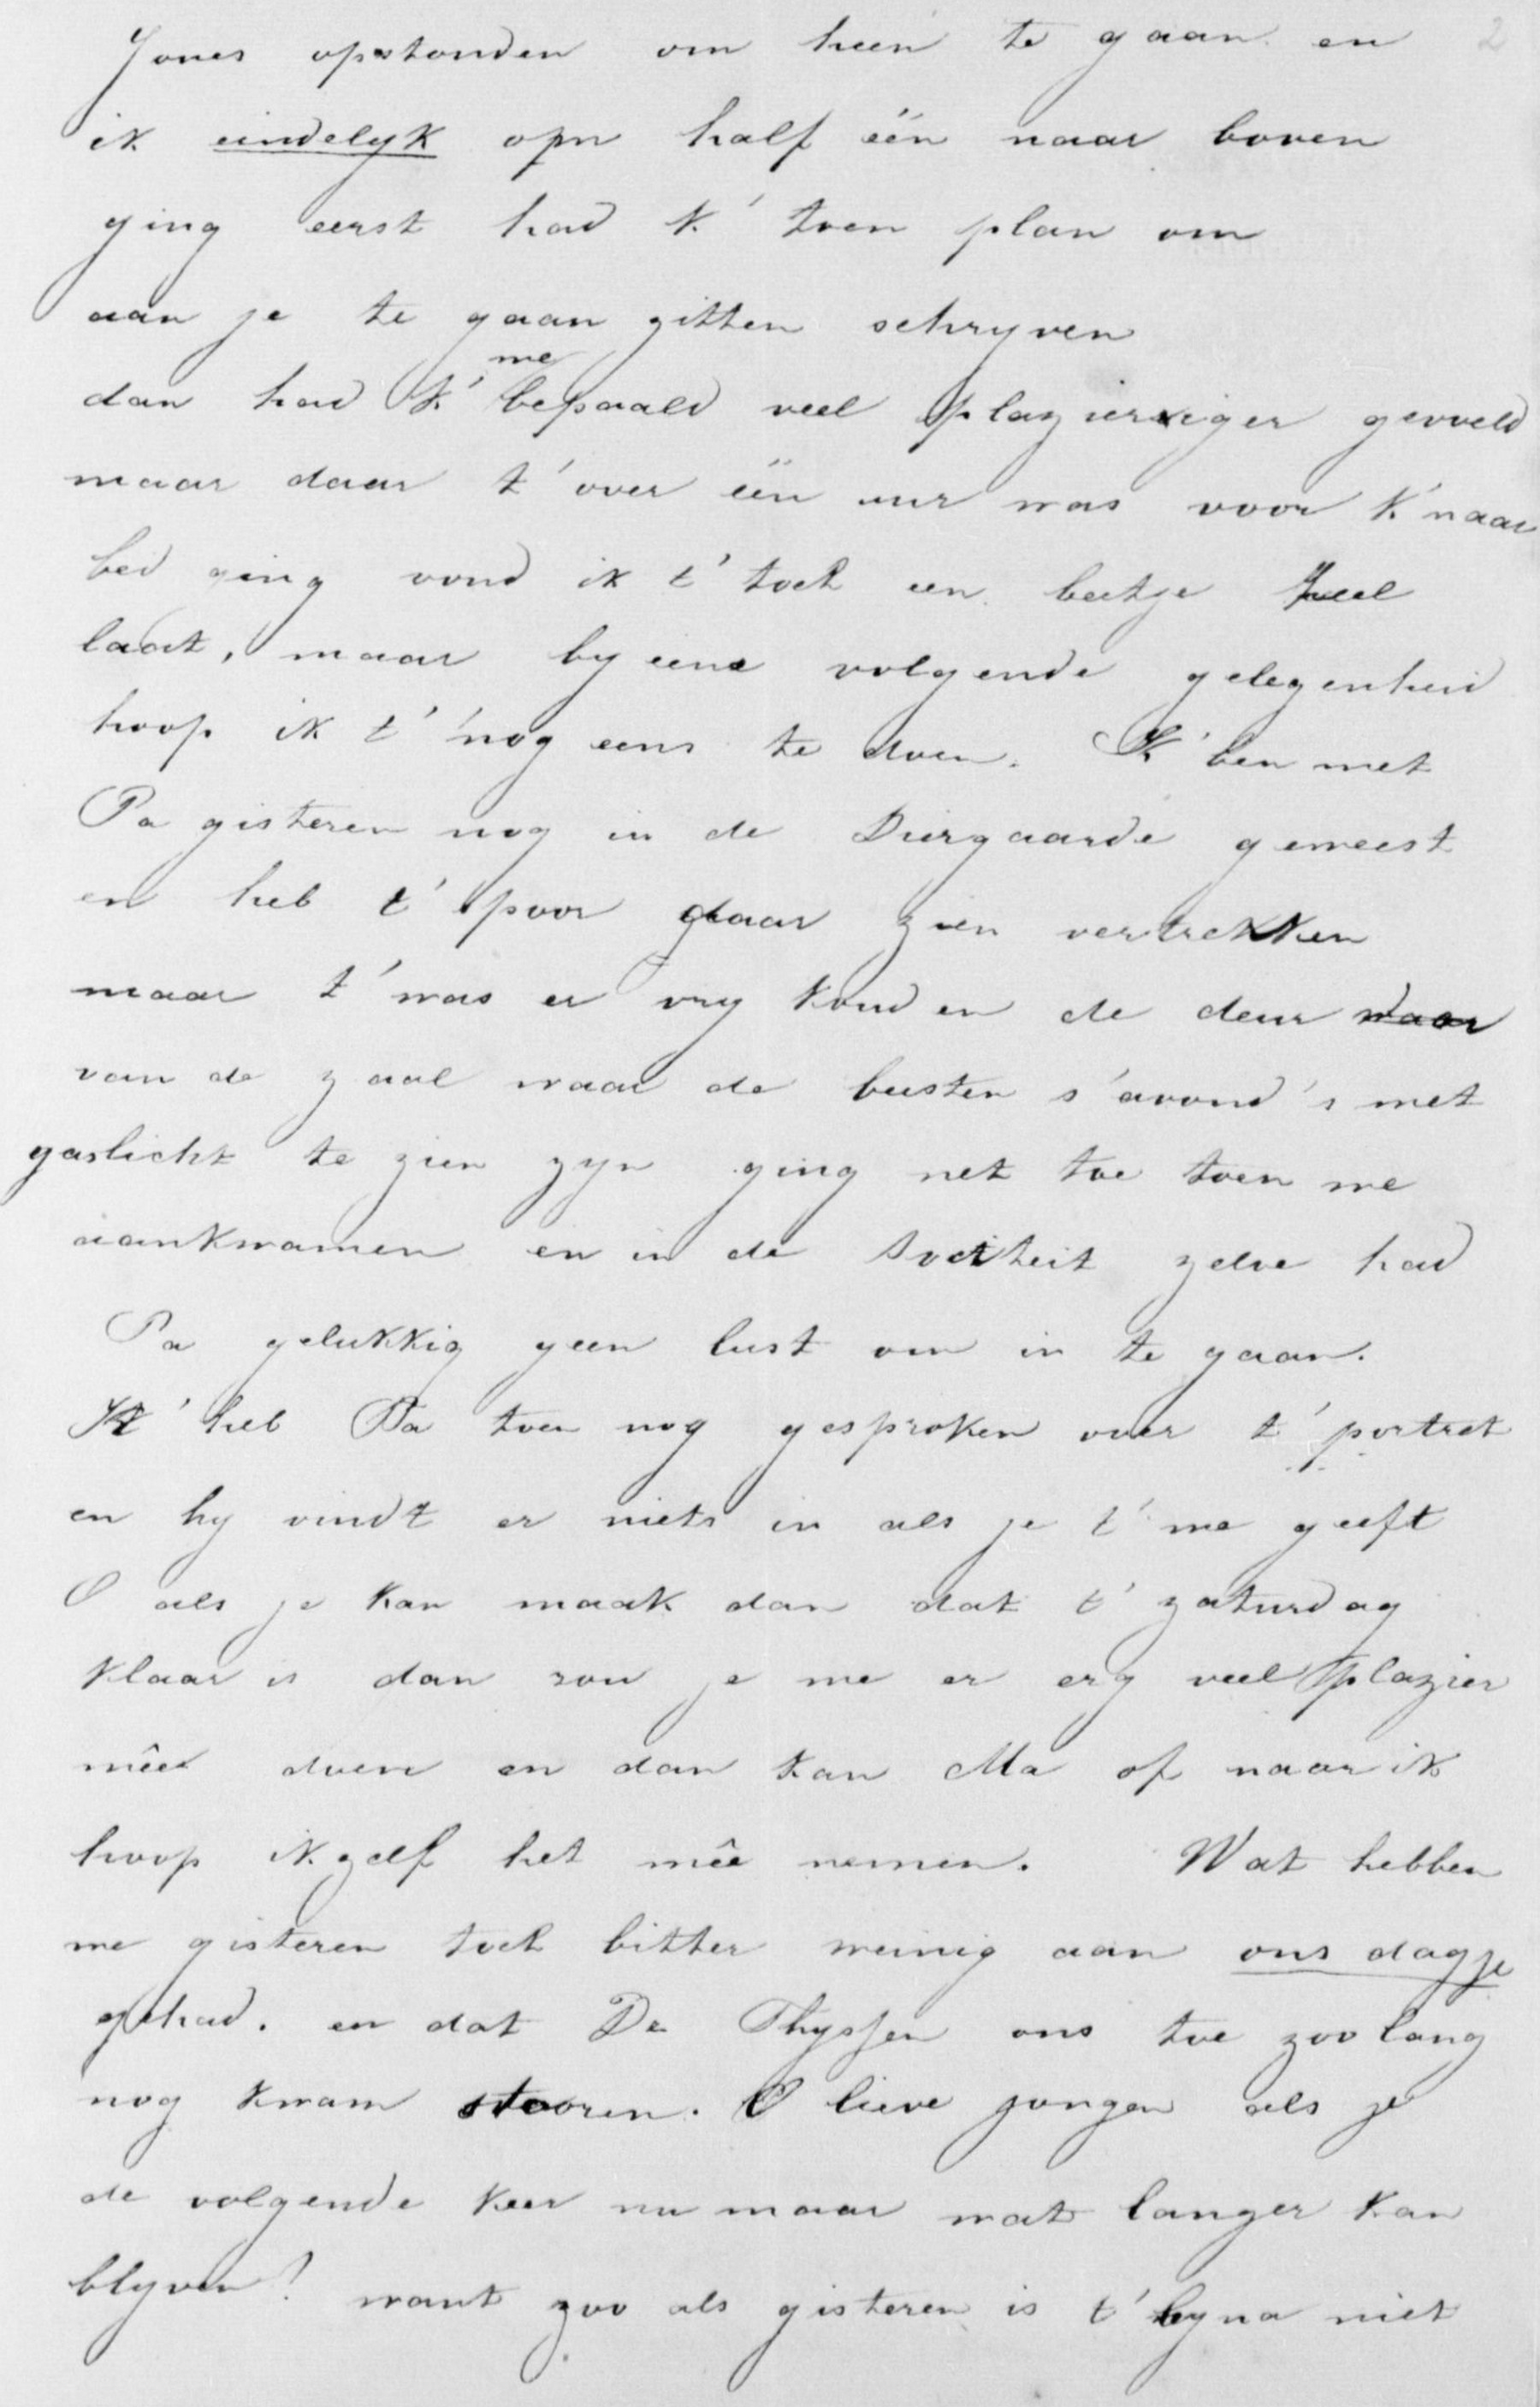 2
Jones opstonden om heen te gaan en
ik eindelyk opn half één naar boven
ging eerst had k' toen plan om
aan je te gaan zitten schryven
me
dan had k' bepaald veel plazieriger gevoeld
maar daar t' over één uur was voor k' naar
bed ging vond ik t' toch een beetje heel
laat, maar by eene volgende gelegenheid
hoop ik t' nog eens te doen. K' ben met
Pa gisteren nog in de Diergaarde geweest
en heb t' spoor daar zien vertrekken
maar t' was er vry koud en de deur waar
van de zaal waar de beesten s'avond's met
gaslicht te zien zyn ging net toe toen we
aankwamen en in de Societeit zelve had
Pa gelukkig geen lust om in te gaan.
K' heb Pa toen nog gesproken over t' portret
en hy vindt er niets in als je t' me geeft
O als je kan maak dan dat t' zaturdag
klaar is dan zou je me er erg veel plazier
mêe doen en dan kan Ma of naar ik
hoop ik zelf het mêe nemen. Wat hebben
we gisteren toch bitter weinig aan ons dagje
gehad. en dat De Thyssen ons toe zoo lang
nog kwam stooren. O lieve jongen als je
de volgende keer nu maar wat langer kan
blyven! want zoo als gisteren is t' byna niet